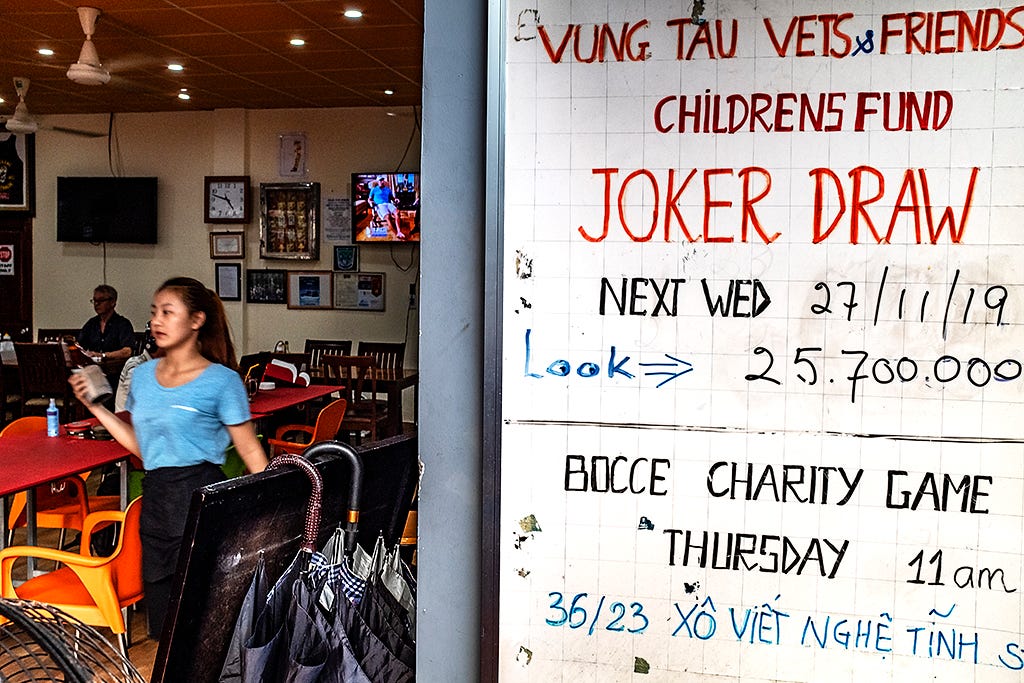 VUNG TAU VETS & FRIENDS
CHILDRENS FUND
JOKER DRAW
NEXT WED 27/11/19
Look ⇒ 25.700.000
BOCCE CHARITY GAME
THURSDAY 11am
36/23 XÔ VIẾT NGHỆ TĨNH
STOP